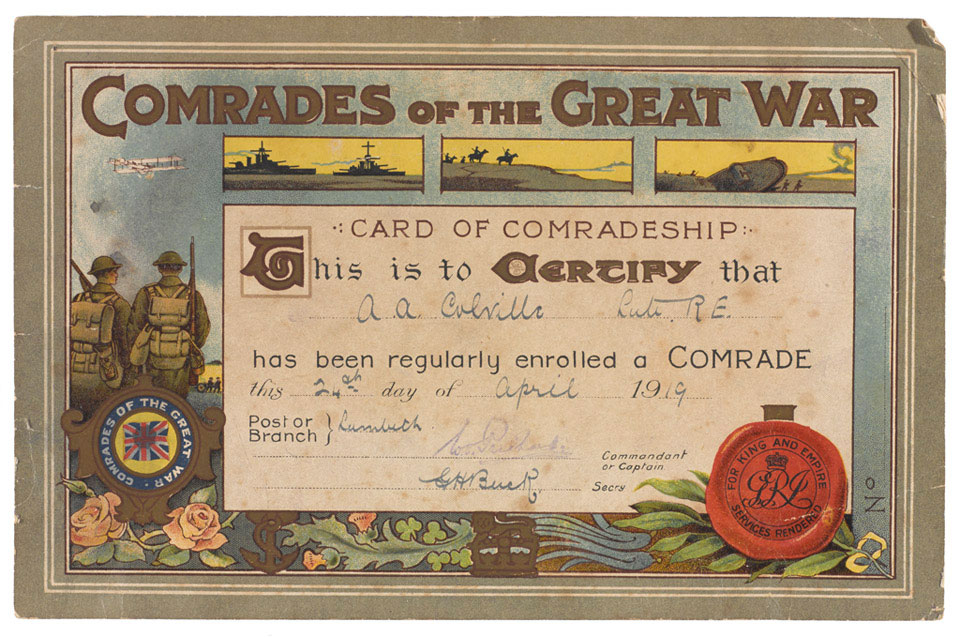 COMRADES OF THE GREAT WAR
CARD OF COMRADESHIP
This is to CERTIFY that
A. A. Colville Late. R.E.
has been regularly enrolled a COMRADE
this 24th day of April 1919
Post or
Branch } Lambeth
Commandant
or Captain
G H Buck. Secry
COMRADES OF THE GREAT WAR
FOR KING AND EMPIRE
GRI
SERVICES RENDERED
No